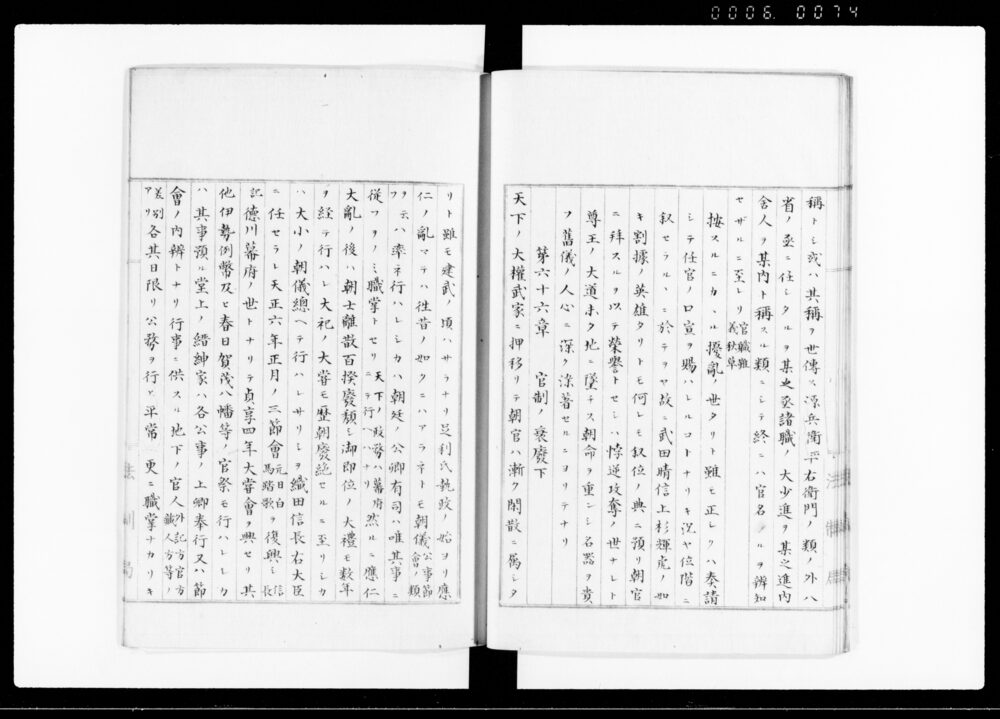 0006. 0074
稱トシ或ハ其稱ヲ世傳ス源兵衞平右衞門ノ類ノ外ハ
省ノ丞ニ任シタルヲ某之丞諸職ノ大少進ヲ某之進内
舍人ヲ某内ト稱スル類ニシテ終ニハ官名タルヲ辨知
セザルニ至レリ官職難義秋草
按スルニカヽル擾亂ノ世タリト雖モ正シクハ奏請
シテ任官ノ口宣ヲ賜ハレルコトナリキ況ヤ位階ニ
叙セラルヽニ於テヲヤ故ニ武田晴信上杉輝虎ノ如
キ割據ノ英雄タリトモ何レモ叙位ノ典ニ預リ朝官
ニ拜スルヲ以テ榮譽トセシハ悖逆攻奪ノ世ナレト
尊王ノ大道未タ地ニ墜チス朝命ヲ重ンシ名器ヲ貴
フ舊儀ノ人心ニ深ク染著セルニヨリテナリ
第六十六章　官制ノ衰廢下
天下ノ大權武家ニ押移リテ朝官ハ漸ク閑散ニ屬シタ
リト雖モ建武ノ頃ハサラナリ足利氏執政ノ始ヨリ應
仁ノ亂マテハ徃昔ノ如クニハアラネトモ朝儀公事節會ノ類
ヲ云フハ率ネ行ハレシカハ朝廷ノ公卿有司ハ唯其事ニ
從フヲノミ職掌トセリ天下ノ政務ハ幕府ニテ行ハナリ然ルニ應仁
大亂ノ後ハ朝士離散百揆廢頽シ御即位ノ大禮モ數年
ヲ経テ行ハレ大祀ノ大嘗モ歴朝廢絶セルニ至リシカ
ハ大小ノ朝儀總ヘテ行ハレサリシヲ織田信長右大臣
ニ任セラレ天正六年正月ノ三節會元日白馬踏歌ヲ復興シ信長
記德川幕府ノ世トナリテ貞享四年大嘗會ヲ興セリ其
他伊勢例幣及ヒ春日賀茂八幡等ノ官祭モ行ハレシカ
ハ其事預ル堂上ノ縉紳家ハ各公事ノ上卿奉行又ハ節
會ノ内辨トナリ行事ニ供スル地下ノ官人外記方官方藏人方等ノ
差別アリハ各其日限リ公務ヲ行ヒ平常更ニ職掌ナカリキ
法制局